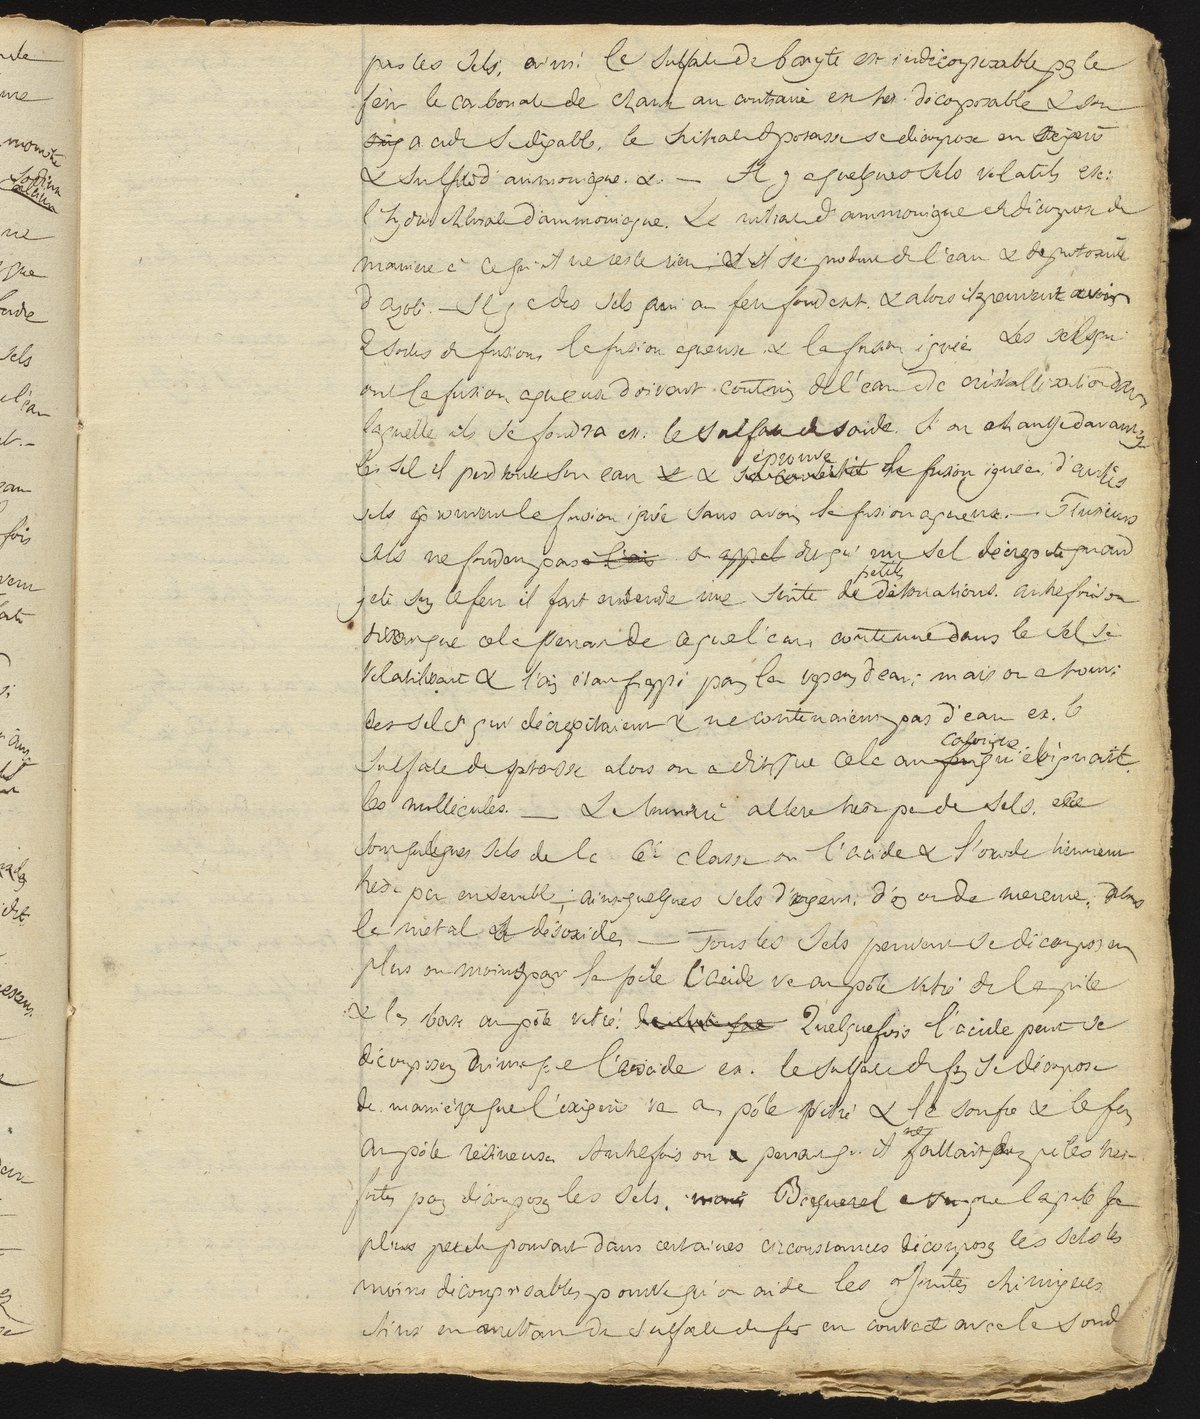 pas les sels, ainsi le sulfate de baryte est indécomposable par le
feu le carbonate de chaux au contraire est très décomposable & son
acide se dégable, le nitrate de potasse se décompose en oxigène
& sulfite d'ammoniaque. &. — Il y a quelques sels volatils ex:
l'hydrochlorate d'ammoniaque. Le nitrate d'ammoniaque se décompose de
manière à ce qu'il ne reste rien, & il se produit de l'eau & de protoxide
d'azote. — Il y a des sels qui au feu fondent. & alors ils peuvent avoir
2 sortes de fusion, la fusion aqueuse & la fusion ignée. Les sels qui
ont la fusion aqueuse doivent contenir de l'eau de cristallisation dans
laquelle ils se fondra ex. le sulfate de soude. Si on chauffe davantage
les sel il perd toute son eau & éprouve la fusion ignée. d'autres
sels éprouvent la fusion ignée sans avoir la fusion aqueuse. — Plusieurs
sels ne fondent pas on dis qu'un sel décrepite quand
jeté sur le feu il fait entendre une suite de petits détonations. autrefois on
disoit que cela venait de ce que l'eau contenue dans le sel se
volatilisant & l'air étant frappé par la vapeur d'eau; mais on a trouvé
des sels qui décrepitaient & ne contenaient pas d'eau ex. le
sulfate de potasse alors on a dit que cela au calorique qui éloignait
les mollécules. — La lumière altère très peu de sels, ce
sont quelques sels de la 6e classe ou l'acide & l'oxide tiennent
très peu ensemble; ainsi quelques sels d'argent, d'or ou de mercure, alors
le métal se désoxide — Tous les sels peuvent se décomposer
plus ou moins par la pile l'acide va au pôle vitré de la pile
& la base au pôle vitré. Quelquefois l'acide peut se
décomposer ainsi que l'oxide ex. le sulfate de fer se décompose
de manière que l'oxigène va au pôle vitré & le soufre & le fer
au pôle résineux. Autrefois on a pensé qu'il fallait des piles très
fortes pour décomposer les sels, Becquerel a vu que la pile la
plus petite pouvait dans certaines circonstances décomposer les sels les
moins décomposables pourvu qu'on aide les affinités chimiques
Ainsi en mettant du sulfate de fer en contact avec la soude